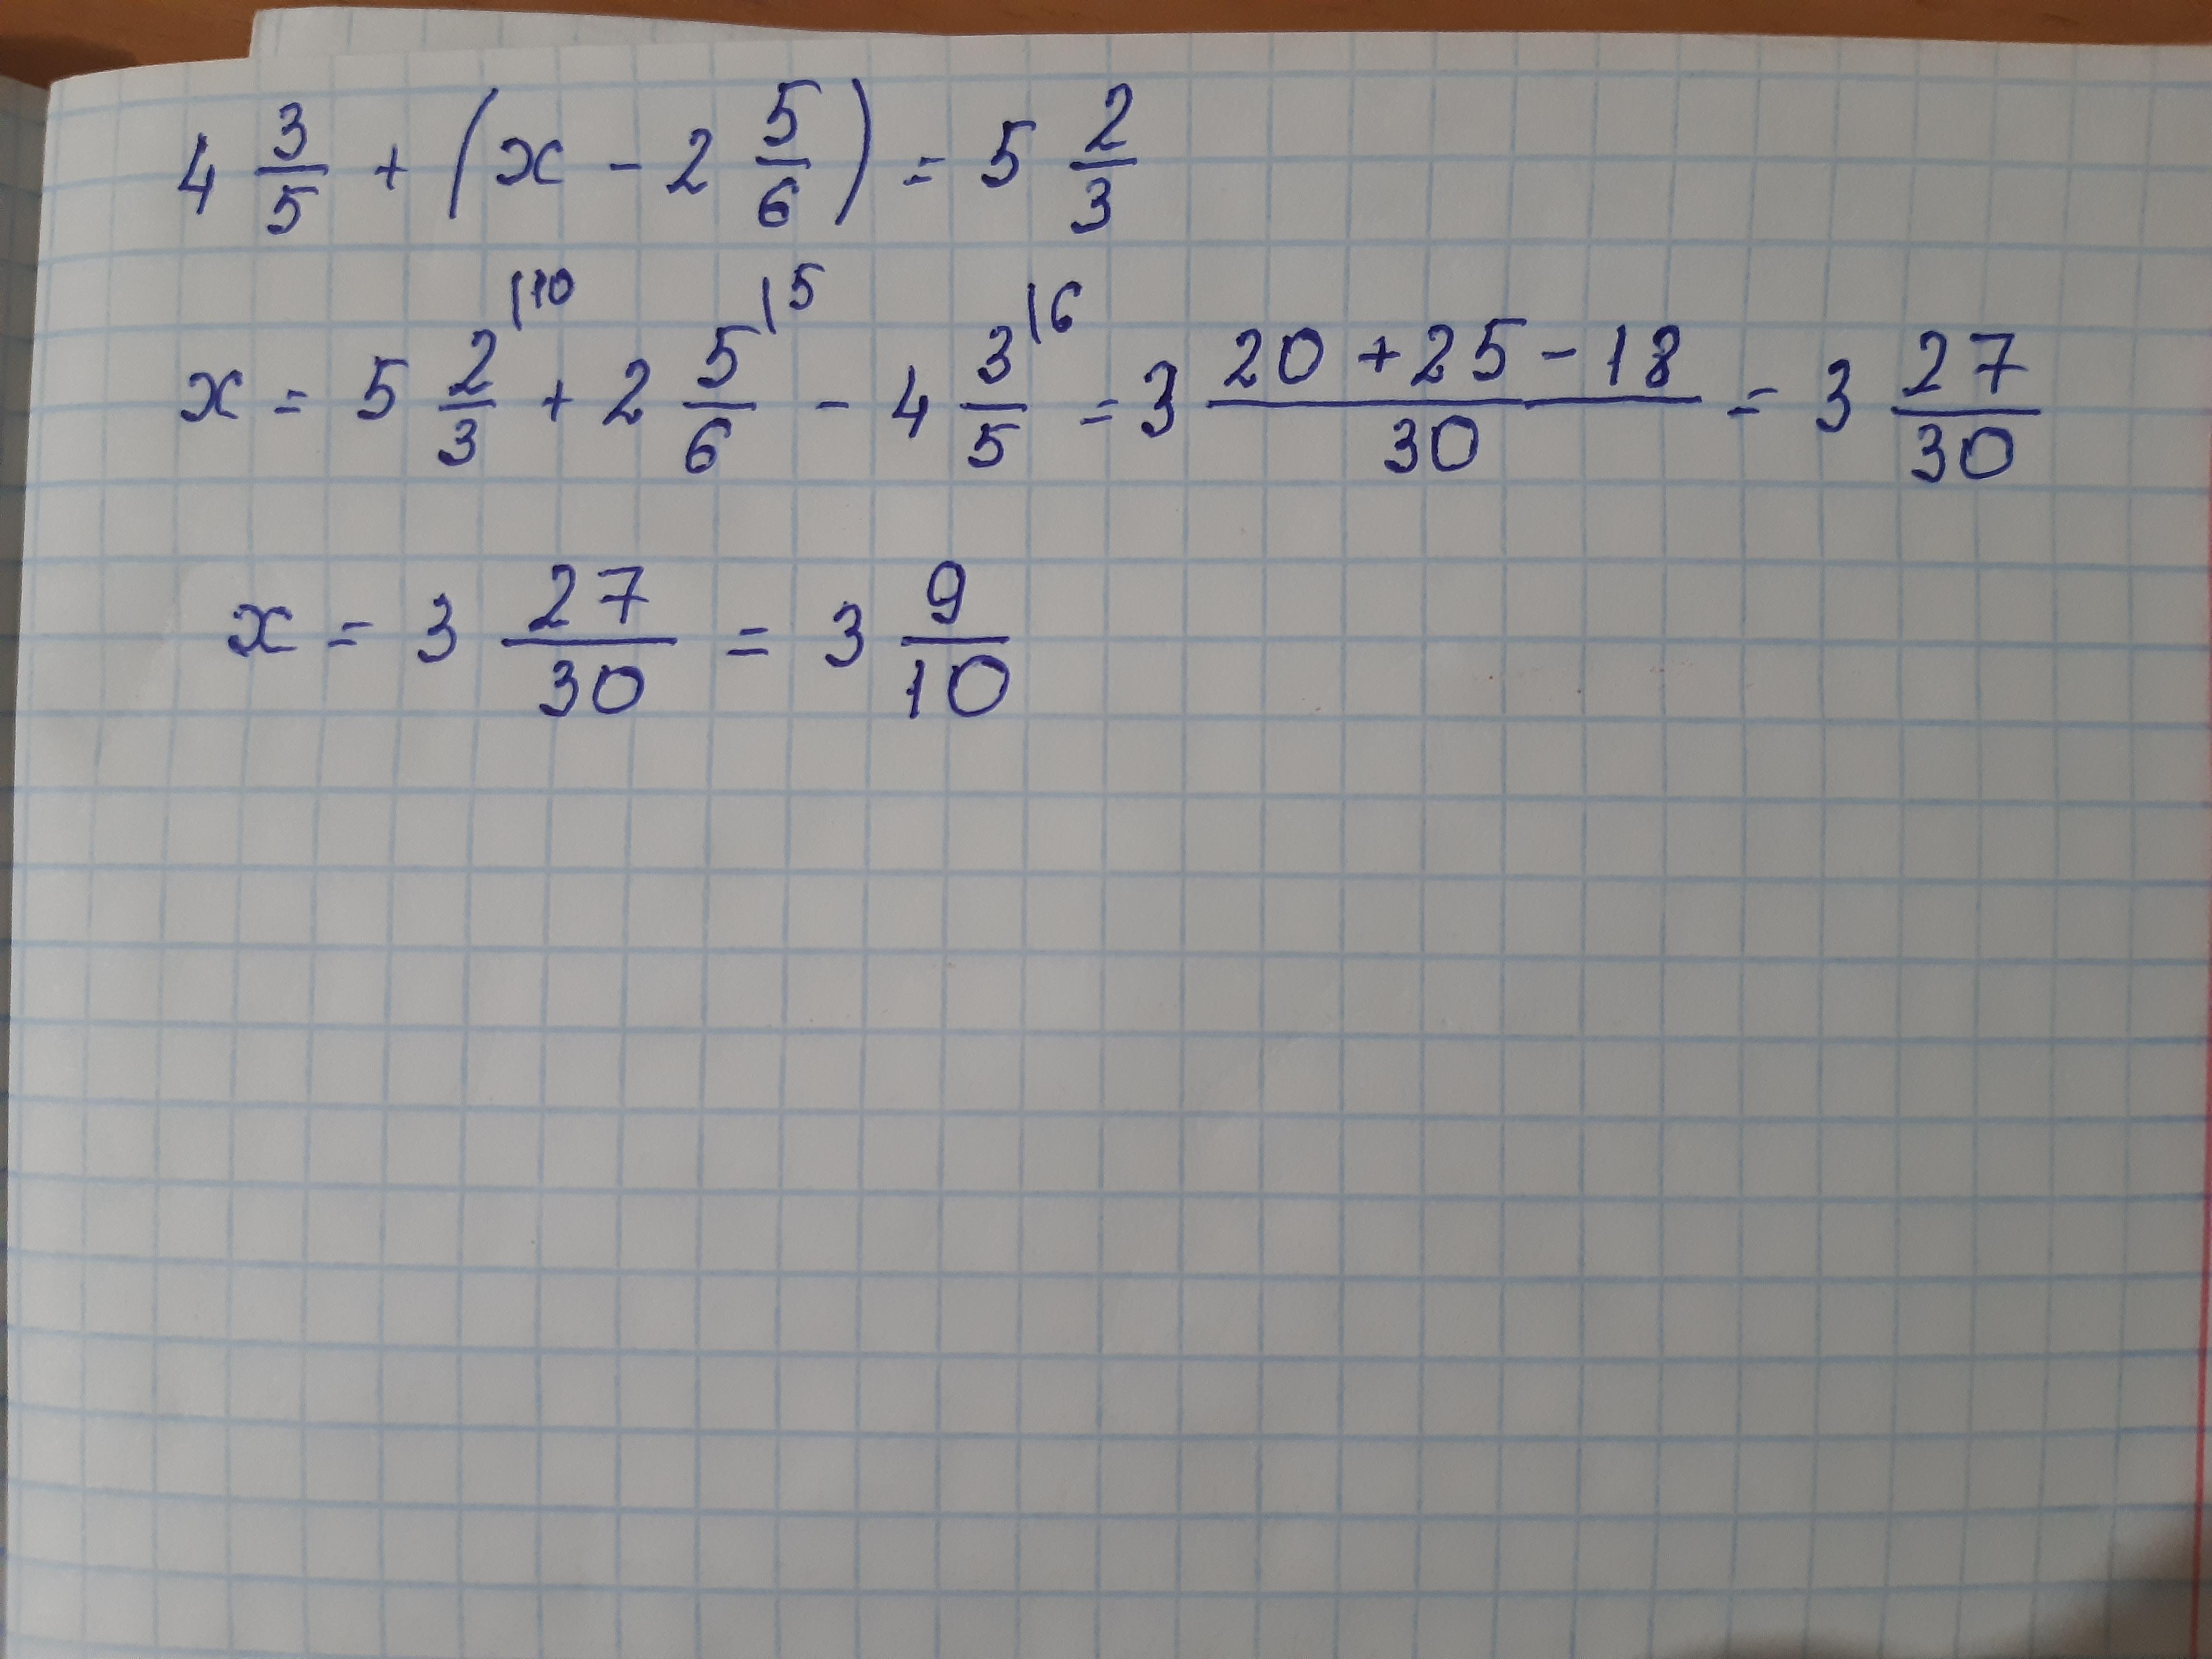 4 3/5 + (x - 2 5/6) = 5 2/3
x = 5 2/3 |10 + 2 5/6 |5 - 4 3/5 |6 = 3 (20 + 25 - 18)/30 = 3 27/30
x = 3 27/30 = 3 9/10